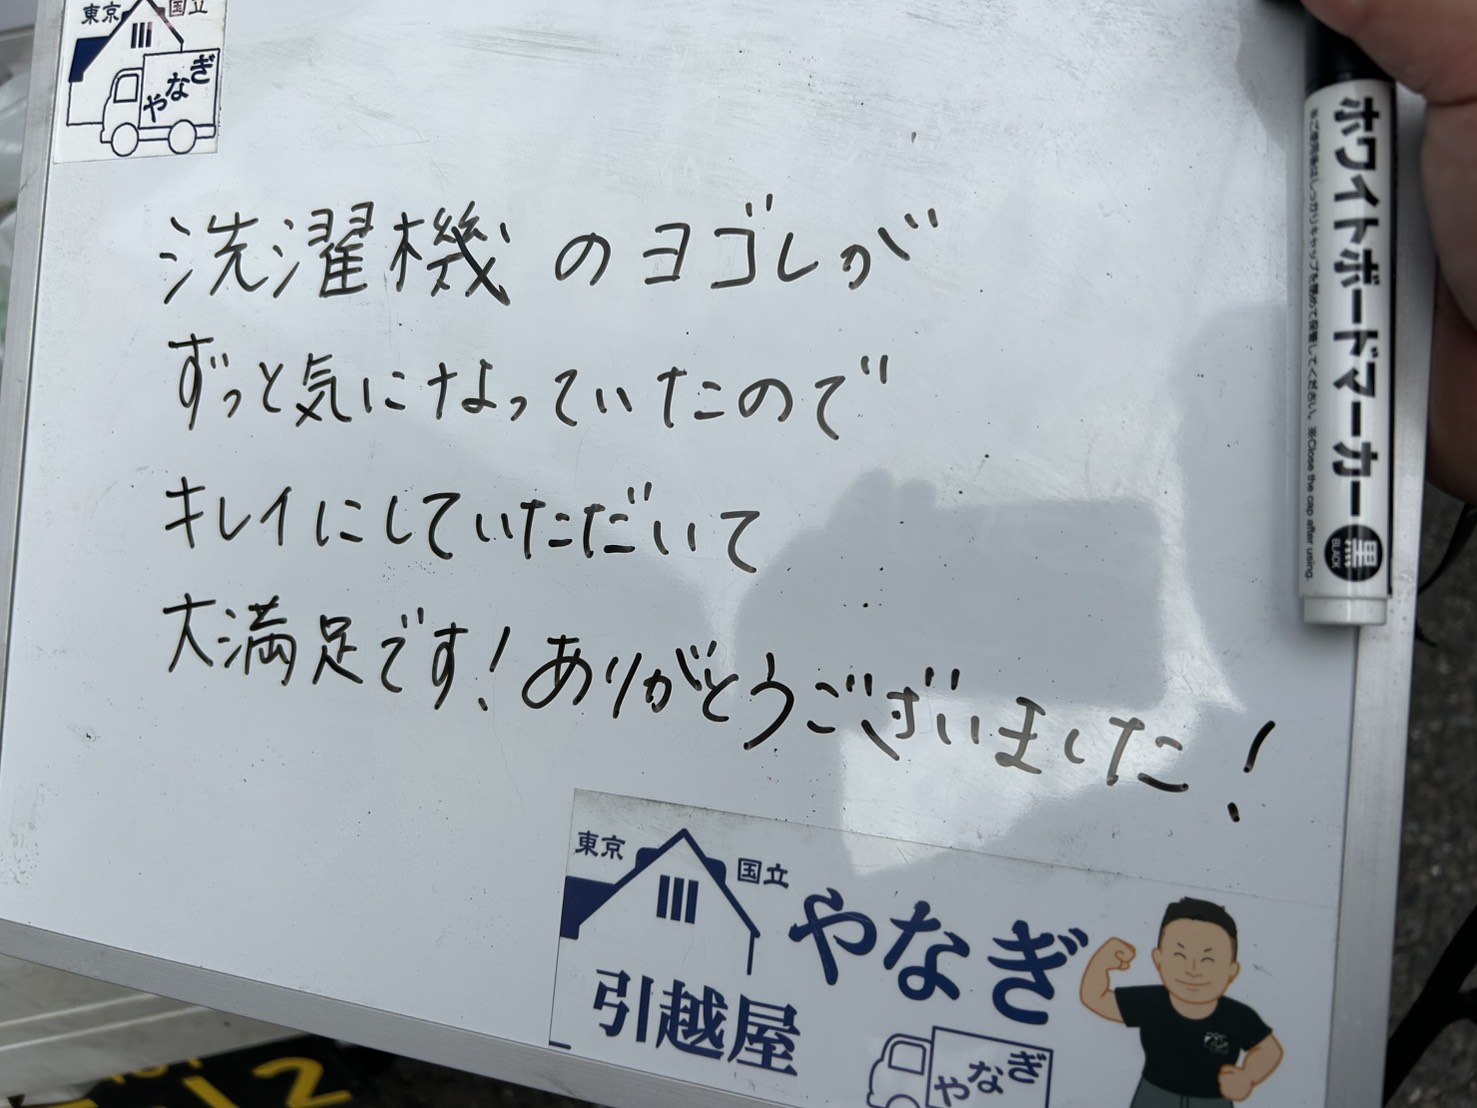 東京 国立
やなぎ
洗濯機のヨゴレが
ずっと気になっていたので
キレイにしていただいて
大満足です!ありがとうございました!
ホワイトボードマーカー 黒
BLACK
※Close the cap after using.
東京 国立
やなぎ
引越屋
やなぎ
12